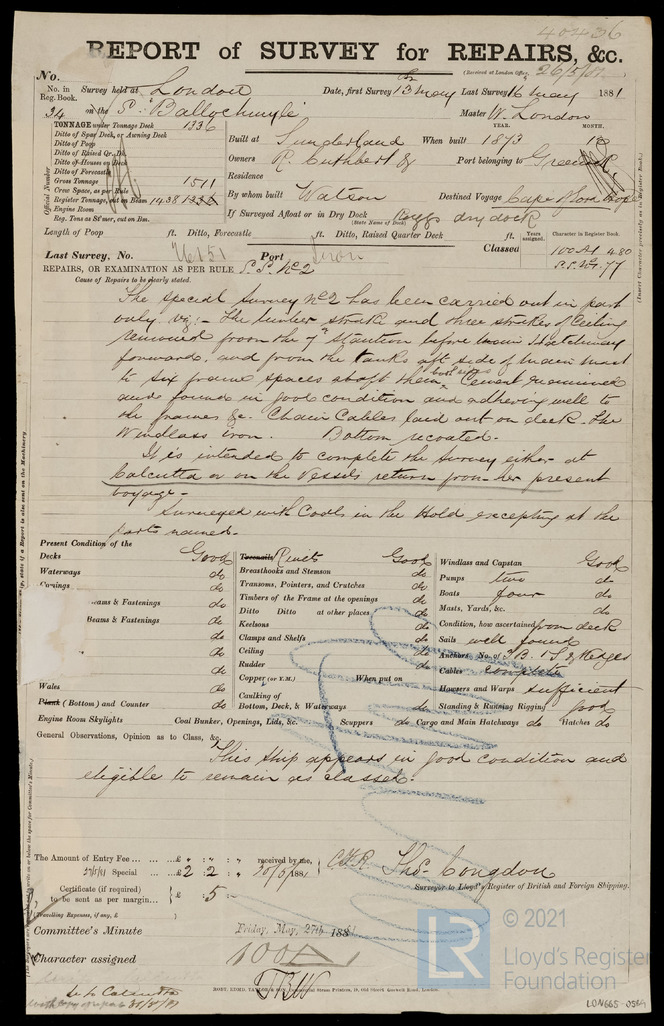 40436
REPORT of SURVEY for REPAIRS, &c.
(Received at London Office, 26/5/81
No.
No. in Reg. Book. Survey held at London Date, first Survey 13 May Last Survey 16 May 1881
34 on the S. "Ballochmyle Master W. London
TONNAGE under Tonnage Deck 1336
Ditto of Spar Deck, or Awning Deck
Ditto of Poop
Ditto of Raised Qr. Dk.
Ditto of Houses on Deck
Ditto of Forecastle
Gross Tonnage 1511
Crew Space, as per Rule
Register Tonnage, cut on Beam 1438
Engine Room
Reg. Tons as St'mer, cut on Bm.
Official Number
YEAR. MONTH.
Built at Sunderland When built 1873 10
Owners R. Cuthbert & Port belonging to Greenock
Residence
By whom built Watson Destined Voyage Cape of Good Hope
If Surveyed Afloat or in Dry Dock dry dock
(State Name of Dock)
Length of Poop ft. Ditto, Forecastle ft. Ditto, Raised Quarter Deck ft.
Years assigned. Character in Register Book.
Classed 100A1 4.80
S.S. No.1.77
Last Survey, No. Port Iron
REPAIRS, OR EXAMINATION AS PER RULE S.S. No 2
Cause of Repairs to be clearly stated.
The special Survey No 2 has been carried out in part
only viz:- The limber strake and three strakes of Ceiling
removed from the 7th Stantion before main Hatchway
forwards, and from the tanks aft side of main mast
to six frame spaces abaft them, both sides Cement examined
and found in good condition and adhering well to
the frames &c. Chain Cables laid out on deck. The
Windlass iron. Bottom recoated.
It is intended to complete the Survey either at
Calcutta or on the Vessels return from her present
voyage.
Surveyed with Coals in the Hold excepting at the
parts named.
Present Condition of the
Decks Good
Waterways do
Comings do
Beams & Fastenings do
Beams & Fastenings do
do
do
Wales do
Plank (Bottom) and Counter do
Treenails Rivets Good
Breasthooks and Stemson do
Transoms, Pointers, and Crutches do
Timbers of the Frame at the openings do
Ditto Ditto at other places do
Keelsons do
Clamps and Shelfs do
Ceiling do
Rudder do
Copper (or Y.M.) When put on
Caulking of Bottom, Deck, & Waterways do
Windlass and Capstan Good
Pumps two do
Boats four do
Masts, Yards, &c. do
Condition, how ascertained from deck
Sails well found
Anchors No. of 3 B. 1 S. 2 Kedges
Cables complete
Hawsers and Warps sufficient
Standing & Running Rigging good
Engine Room Skylights Coal Bunker, Openings, Lids, &c. Scuppers do Cargo and Main Hatchways do Hatches do
General Observations, Opinion as to Class, &c.
This ship appears in good condition and
eligible to remain as classed.
The Amount of Entry Fee ... £ " : " : " received by me,
Special ... £ 2 : 2 : " 1881
Certificate (if required) to be sent as per margin... £ : 5
(Travelling Expenses, if any, £ )
Thos. Congdon
Surveyor to Lloyd's Register of British and Foreign Shipping.
Committee's Minute Friday, May, 27th 1881
Character assigned 100A1
© 2021
Lloyd's Register
Foundation
LR
LON665-0564